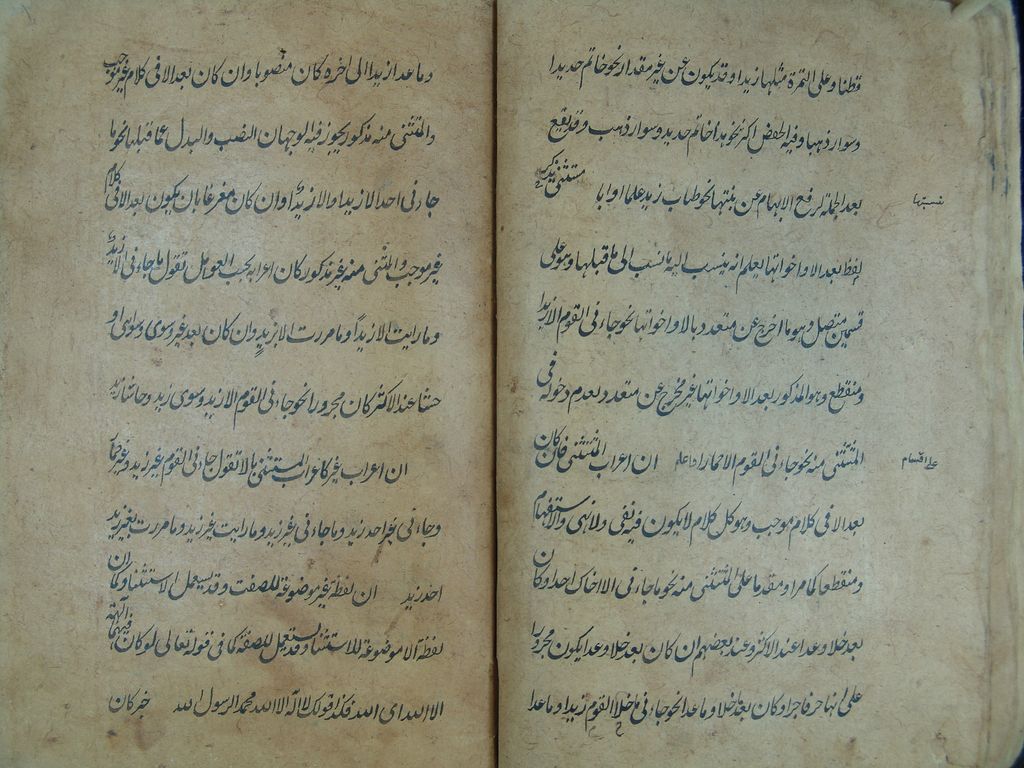 قطنا وعلى التمرة مثلها زبدا وقد يكون عن غير مقدار نحو خاتم حديدا
وسوار ذهبا وفيه الخفض اكثر نحو هذا خاتم حديد وسوار ذهب وقد يقع
بعد الجملة لرفع الابهام عن نسبتها نحو طاب زيد علما او ابا مستثنى يذكر
نسبتها
لفظ بعد الا واخواتها ليعلم انه ينسب اليه ما نسب الى ما قبلها وهو على
قسمين متصل وهو ما اخرج عن متعدد بالا واخواتها نحو جاءنى القوم الا زيدا
ومنقطع وهو المذكور بعد الا واخواتها غير مخرج عن متعدد لعدم دخوله فى
المستثنى منه نحو جاءنى القوم الا حمارا فاعلم ان اعراب المستثنى فان كان
على اقسام
بعد الا فى كلام موجب وهو كل كلام لا يكون فيه نفى ولا نهى ولا استفهام
ومنقطعا كما مر او مقدما على المستثنى منه نحو ما جاءنى الا اخاك احد او كان
بعد خلا وعدا عند الاكثر وعند بعضهم ان كان بعد خلا وعدا يكون مجرورا
على انها حرفا جر او كان بعد ما خلا وما عدا نحو جاءنى ما خلا القوم زيدا وما عدا
وما عدا زيدا الى اخره كان منصوبا وان كان بعد الا فى كلام غير موجب
والمستثنى منه مذكور يجوز فيه الوجهان النصب والبدل عما قبلها نحو ما
جاءنى احد الا زيدا والا زيد وان كان مفرغا بان يكون بعد الا فى كلام
غير موجب والمستثنى منه غير مذكور كان اعرابه بحسب العوامل تقول ما جاءنى الا زيد
وما رايت الا زيدا وما مررت الا بزيد وان كان بعد غير وسوى وسواء او
حشا عند الاكثر كان مجرورا نحو جاءنى القوم الا زيد وسوى زيد وحاشا زيد
ان اعراب غير كاعراب المستثنى بالا تقول جاءنى القوم غير زيد وغير حمار
وجاءنى غير احد زيد وما جاءنى غير زيد وما رايت غير زيد وما مررت بغير زيد
احد زيد ان لفظة غير موضوعة للصفت وقد يستعمل لاستثنا وكان
لفظة الا موضوعة للاستثنا وقد يستعمل للصفة كما فى قوله تعالى لو كان فيهما الهة
الا الله اى الله فكذا قولك لا اله الا الله محمد الرسول الله خبر كان